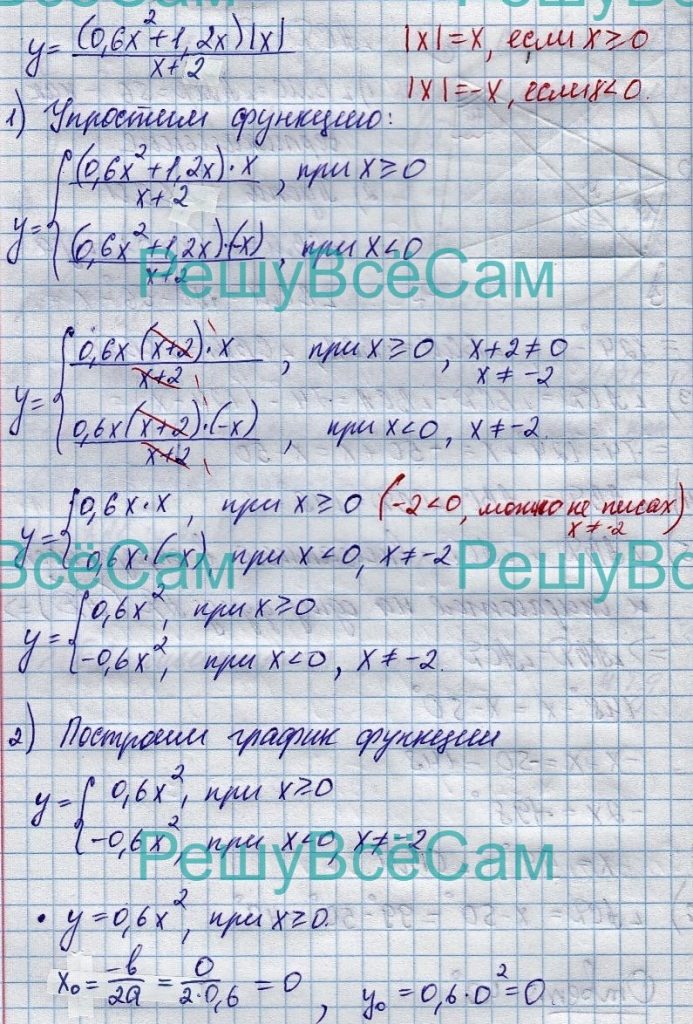 РешуВсёСам
y = (0,6x² + 1,2x)|x| / x+2
|x| = x, если x ≥ 0
|x| = -x, если x < 0.
1) Упростим функцию:
y = { (0,6x² + 1,2x)·x / x+2 , при x ≥ 0
(0,6x² + 1,2x)·(-x) / x+2 , при x < 0
РешуВсёСам
y = { 0,6x(x+2)·x / x+2 , при x ≥ 0, x+2 ≠ 0
x ≠ -2
0,6x(x+2)·(-x) / x+2 , при x < 0, x ≠ -2.
y = { 0,6x·x, при x ≥ 0 (-2 < 0, можно не писах)
x ≠ -2
0,6x·(-x) при x < 0, x ≠ -2
ВсёСам РешуВс
y = { 0,6x², при x ≥ 0
-0,6x², при x < 0, x ≠ -2.
2) Построим график функции
y = { 0,6x², при x ≥ 0
-0,6x², при x < 0, x ≠ -2
РешуВсёСам
• y = 0,6x², при x ≥ 0.
x₀ = -b / 2a = 0 / 2·0,6 = 0 , y₀ = 0,6·0² = 0